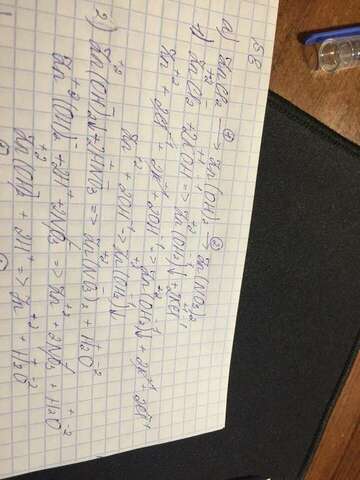 58
a) ZnCl₂ ①→ Zn(OH)₂ ②→ Zn(NO₃)₂
1) ZnCl₂ + 2KOH => Zn(OH)₂↓ + 2KCl
Zn⁺² + 2Cl⁻ + 2K⁺ + 2OH⁻ => Zn(OH)₂↓ + 2K⁺ + 2Cl⁻
Zn⁺² + 2OH⁻ => Zn(OH)₂↓
2) Zn(OH)₂↓ + 2HNO₃ => Zn(NO₃)₂ + H₂O
Zn(OH)₂↓ + 2H⁺ + 2NO₃⁻ => Zn⁺² + 2NO₃⁻ + H₂O
Zn(OH)₂ + 2H⁺ => Zn⁺² + H₂O